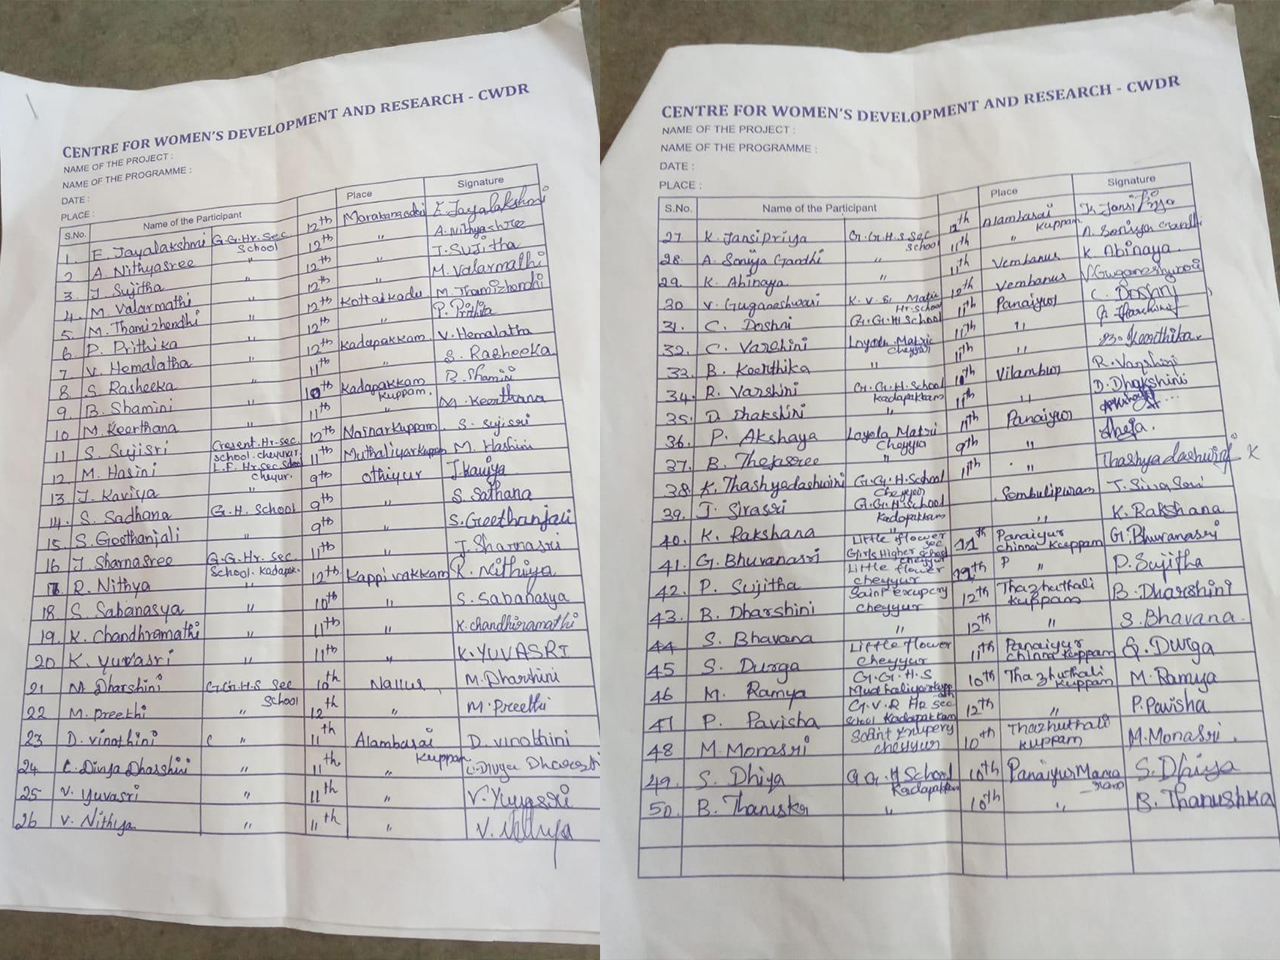 CENTRE FOR WOMEN'S DEVELOPMENT AND RESEARCH - CWDR
NAME OF THE PROJECT :
NAME OF THE PROGRAMME :
DATE :
PLACE :
S.No. Name of the Participant Place Signature
1. E. Jayalakshmi G.G.Hr.Sec School 12th E. Jayalakshmi
2 A. Nithyasree " 12th " A. Nithyashree
3. J. Sujitha " 12th " J. Sujitha
4. M. Valarmathi " 12th " M. Valarmathi
5. M. Thamizhondhi " 12th Kottaikadu M. Thamizhondhi
6 P. Prithika " 12th " P. Prithika
7 V. Hemalatha " 12th Kadapakkam V. Hemalatha
8 S. Rasheeka " 11th " S. Rasheeka
9. B. Shamini " 10th Kadapakkam Kuppam. B. Shamini
10 M. Keerthana " 11th " M. Keerthana
11 S. Sujisri Cresent.Hr-sec. school.cheyyur. 12th Nainarkuppam S. Sujisri
12 M. Hasini L.F. Hr.Sec School cheyur. 11th Muthaliyarkuppam M. Hashini
13 J. Kaviya " 9th Othiyur J. Kaviya
14. S. Sadhana G.H. School 9th " S. Sathana
15 S. Geethanjali " 9th " S. Geethanjali
16 J. Sharnasree G.G.Hr. Sec. School. Kadapak. 11th " J. Sharnasri
R. Nithya " 12th Kappivakkam R. Nithiya
18 S. Sabanasya " 10th " S. Sabanasya
19. K. Chandhramathi " 11th " K. Chandhiramathi
20 K. Yuvasri " 11th " K. YUVASRI
21 M. Dharshini G.G.H.S Sec School 10th Nallur M. Dharshini
22 M. Preethi " 12th " M. Preethi
23 D. Vinothini " 11th Alambarai Kuppam D. Vinothini
24 C. Divya Dharshini " 11th "
25 V. Yuvasri " 11th " V. Yuvasri
26 V. Nithya " 11th " V. Nithya
CENTRE FOR WOMEN'S DEVELOPMENT AND RESEARCH - CWDR
NAME OF THE PROJECT :
NAME OF THE PROGRAMME :
DATE :
PLACE :
S.No. Name of the Participant Place Signature
27. K. Jansi Priya G.G.H.S.Sec School 12th Alambarai Kuppam K. Jansi Priya
28. A. Soniya Gandhi " 11th " A. Soniya Gandhi
29. K. Abinaya " 11th Vembanur K. Abinaya
30 V. Guganeshwari K.V.S. Matric Hr.School 12th Vembanur V. Guganeshwari
31. C. Doshni G.G.H School 11th Panaiyur C. Doshni
32. C. Varshini Loyola Matric Cheyyur 11th "
33. B. Keerthika " 11th " B. Keerthika
34. R. Varshini G.G.H. School Kadapakkam 10th Vilambur R. Varshini
35. D. Dhakshini " 11th " D. Dhakshini
36. P. Akshaya Loyola Matri Cheyyur 11th Panaiyur
37. B. Thejasree " 9th " Sheja.
38. K. Thashyadashwini G.G.H. School Cheyyur 11th " Thashyadashwini K
39. J. Sirasri G.G.H School Kadapakkam Sembulipuram
40. K. Rakshana " " K. Rakshana
41. G. Bhuvanasri Little flower Girls Higher sec School cheyyur 11th Panaiyur chinna Kuppam G. Bhuvanasri
42. P. Sujitha Little flower cheyyur " P. Sujitha
43. B. Dharshini Saint exupery cheyyur 12th Thazhuthali Kuppam B. Dharshini
44 S. Bhavana " 12th " S. Bhavana
45 S. Durga Little flower cheyyur 11th Panaiyur chinna Kuppam S. Durga
46 M. Ramya G.G.H.S Mudhaliyarkuppam 10th Thazhuthali Kuppam M. Ramya
47 P. Pavisha G.V.R Hr Sec School Kadapakkam 12th " P. Pavisha
48 M. Monasri Saint Exupery cheyyur 10th Thazhuthali Kuppam M. Monasri.
49. S. Dhiya G.G.H School Kadapakkam 10th Panaiyur S. Dhiya
50. B. Thanuska " 10th " B. Thanushka